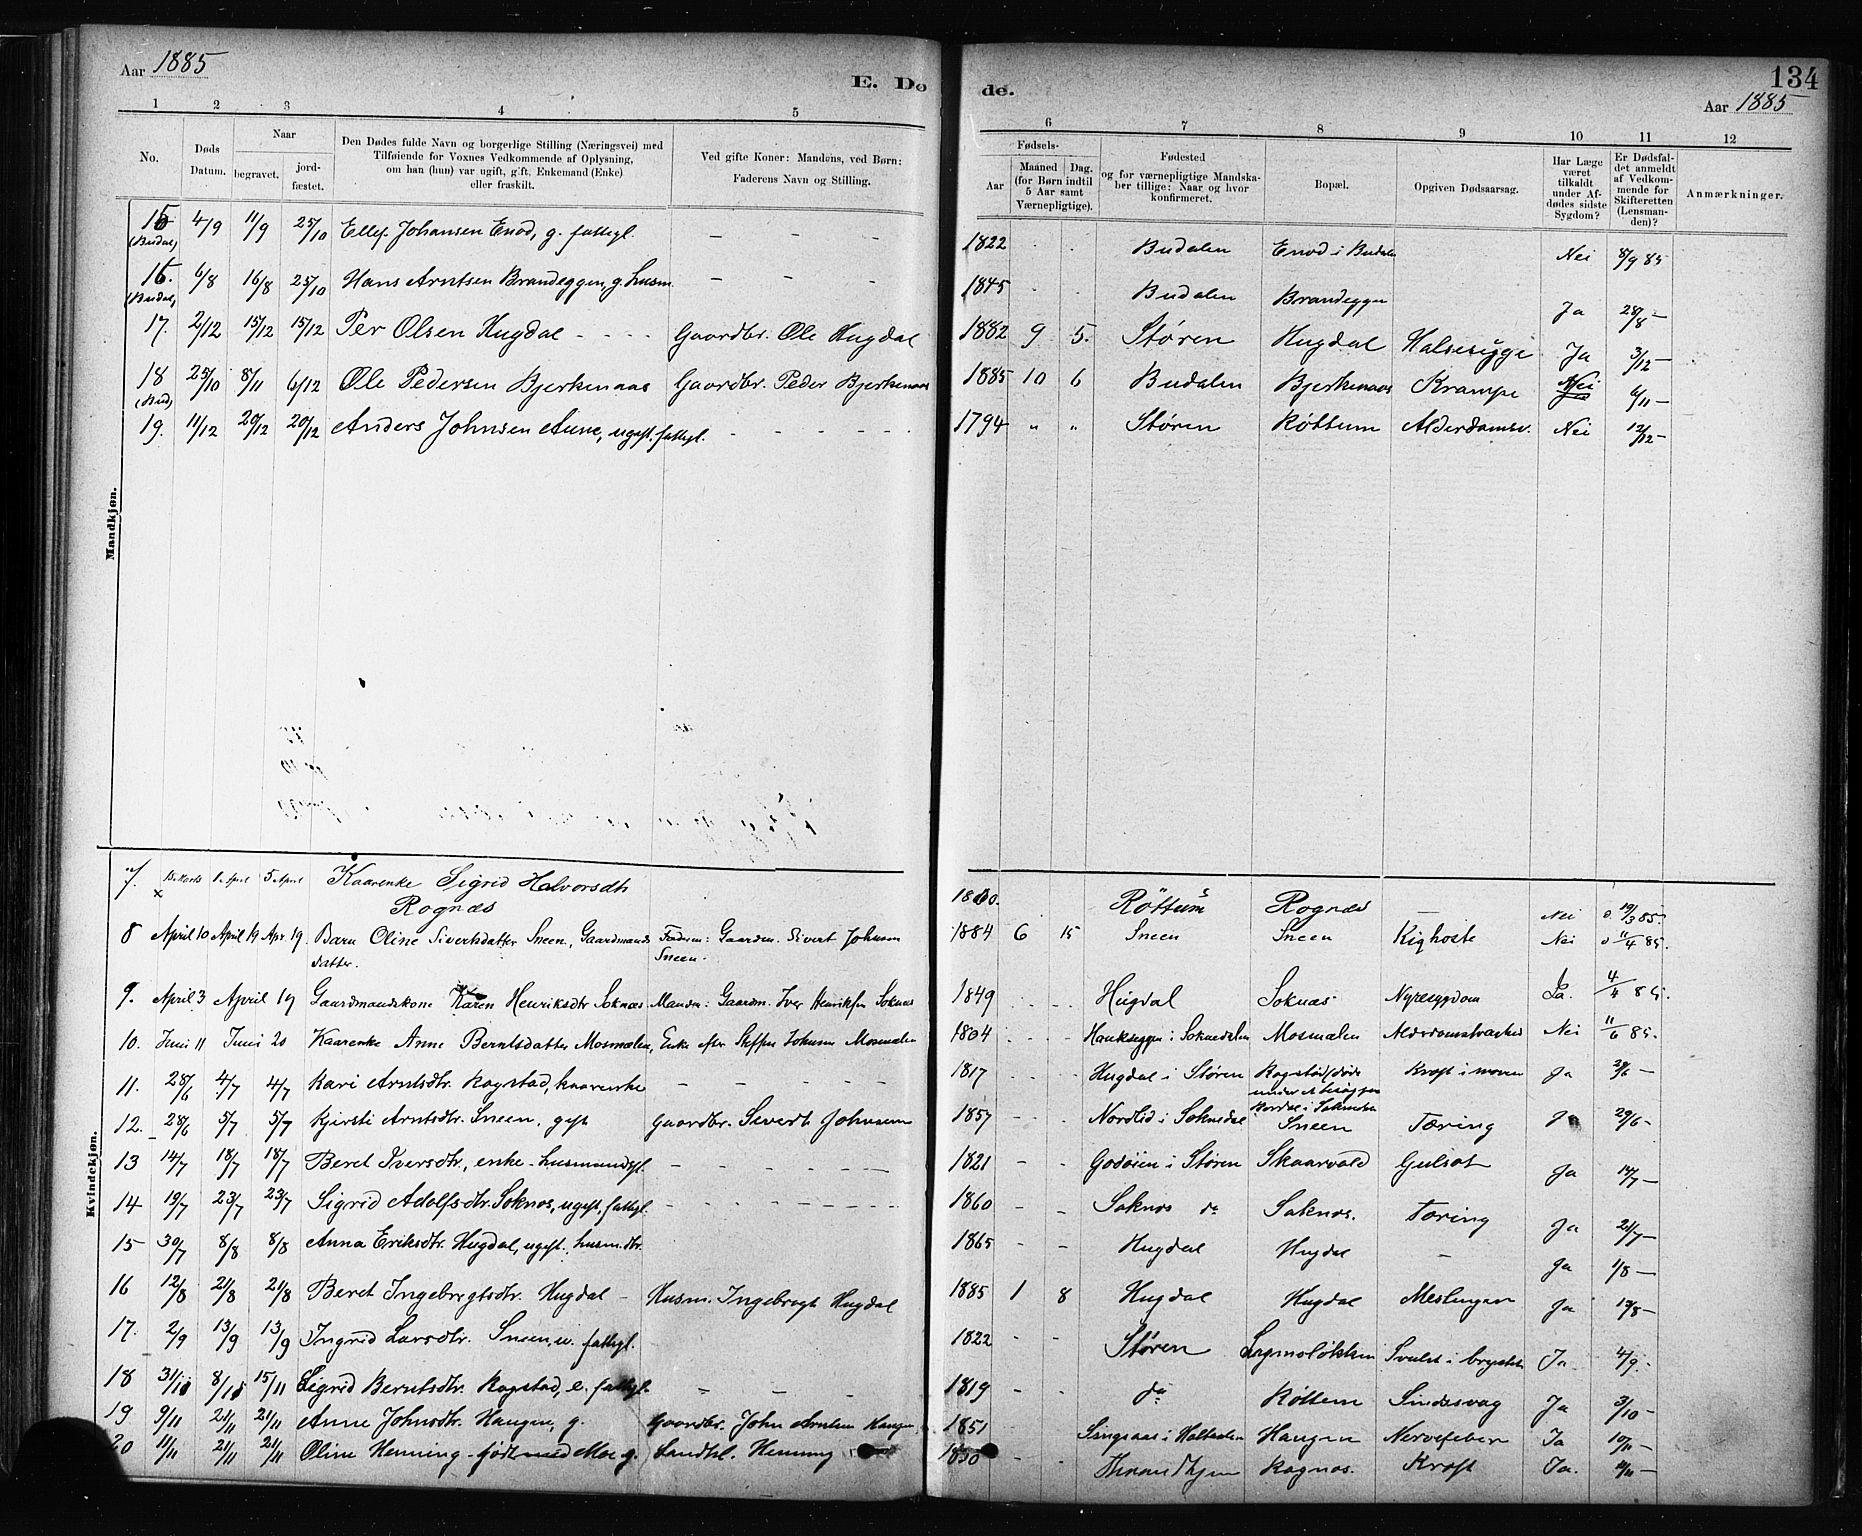 Aar 1885
E. Dø
de.
134
Aar 1885
1 2 3 4 5 6 7 8 9 10 11 12
No.
Døds Datum.
Naar
begravet.
jord-
fæstet.
Den Dødes fulde Navn og borgerlige Stilling (Næringsvei) med
Tilføiende for Voxnes Vedkommende af Oplysning,
om han (hun) var ugift, gift, Enkemand (Enke)
eller fraskilt.
Ved gifte Koner: Mandens, ved Børn:
Faderens Navn og Stilling.
Fødsels-
Aar
Maaned Dag.
(for Børn indtil
5 Aar samt
Værnepligtige).
Fødested
og for værnepligtige Mandska-
ber tillige: Naar og hvor
konfirmeret.
Bopæl.
Opgiven Dødsaarsag.
Har Læge
været
tilkaldt
under Af-
dødes sidste
Sygdom?
Er Dødsfal-
det anmeldt
af Vedkom-
mende for
Skifteretten
(Lensman-
den)?
Anmærkninger.
Mandkjøn.
15 (Budal) 4/9 11/9 25/10 Ellef Johansen Enod, g. fattigl. – – – 1822 Budalen Enod i Budalen Nei 8/9 85
16. (Budal) 6/8 16/8 25/10 Hans Arntsen Brandeggen, g. husm. – – – 1845 Budalen Brandeggen Ja 28/8 –
17. 2/12 15/12 15/12 Per Olsen Hugdal Gaardbr. Ole Hugdal 1882 9 5. Støren Hugdal Halsesyge Ja 3/12 –
18 (Bud) 25/10 8/11 6/12 Ole Pedersen Bjerkenaas Gaardbr. Peder Bjerkenaas 1885 10 6 Budalen Bjerkenaas Krampe Nei 6/11 –
19. 11/12 20/12 20/12 Anders Johnsen Aune, ugift. fattigl. 1794 " " Støren Røttum Alderdomsv. Nei 12/12 –
Kvindekjøn.
7. 15 Marts April 5 April Kaarenke Sigrid Halvorsdtr
Rognæs 18 Røttum Rognæs – Nei 19/3 85
8 April 10 April 19 Apr. 19 Barn Oline Sivertsdatter Sneen, Gaardmands
datter. Faderen: Gaardm. Sivert Johnsen
Sneen. 1884 6 15 Sneen Sneen Kighoste Nei 11/4 85.
9. April 3 April 19 Gaardmandskone Karen Henriksdtr Soknæs Manden: Gaardm. Iver Henriksen Soknæs 1849 Hugdal Soknæs Nyresygdom Ja. 4/4 85.
10. Juni 11 Juni 20 Kaarenke Anne Berntsdatter Mosmælen, Enke efter Steffen Johnsen Mosmælen 1804 i Soknedalen Mosmælen Alderdomssvaghed Nei 11/6 85.
11. 28/6 4/7 4/7 Kari Arntsdtr. Rogstad, kaarenke – – – 1817 Hugdal i Støren Rogstad, døde
under i Soknedalen Kræft i maven Ja 29/6 –
12. 28/6 5/7 5/7 Kjersti Arntsdtr. Sneen, gift Gaardbr. Sivert Johnsen 1857 Nordlid i Soknedal Sneen Tæring Ja 29/6 –
13 14/7 18/7 18/7 Beret Iversdtr., enke – husmandsfl. 1821 – – Godøien i Støren Skaarvold Gulsot Ja 14/7 –
14 19/7 23/7 23/7 Sigrid Adolfsdtr. Soknæs, ugift, fattigl. 1860 – – Soknæs Soknæs. Tæring Ja 21/7 –
15 30/7 8/8 8/8 Anna Eriksdtr. Hugdal, ugift, husm.dtr. 1865 – – Hugdal Hugdal – Ja 1/8 –
16 12/8 21/8 21/8 Beret Ingebregtsdtr. Hugdal – Husm. Ingebregt Hugdal 1885 1 8 Hugdal Hugdal Meslinger Ja –
17. 2/9 13/9 13/9 Ingrid Larsdtr. Sneen, u. fattigl. 1822 – – Støren Svulst i brystet Ja 4/9 –
18 31/10 8/11 15/11 Sigrid Berntsdtr. Rogstad, e. fattigl. – – – 1819 – – do Røttum Sindssvag Ja 3/10 –
19 9/11 21/11 21/11 Anne Johnsdtr. Haugen, g. Gaardbr. John Arntsen Haugen 1851 Singsaas i Holtaalen Haugen Nervefeber Ja 10/11 –
20 11/11 21/11 21/11 Oline Henning – født Moe g. Landhl. Henning 1830 – – Throndhjem Rognæs. Kræft Ja. –